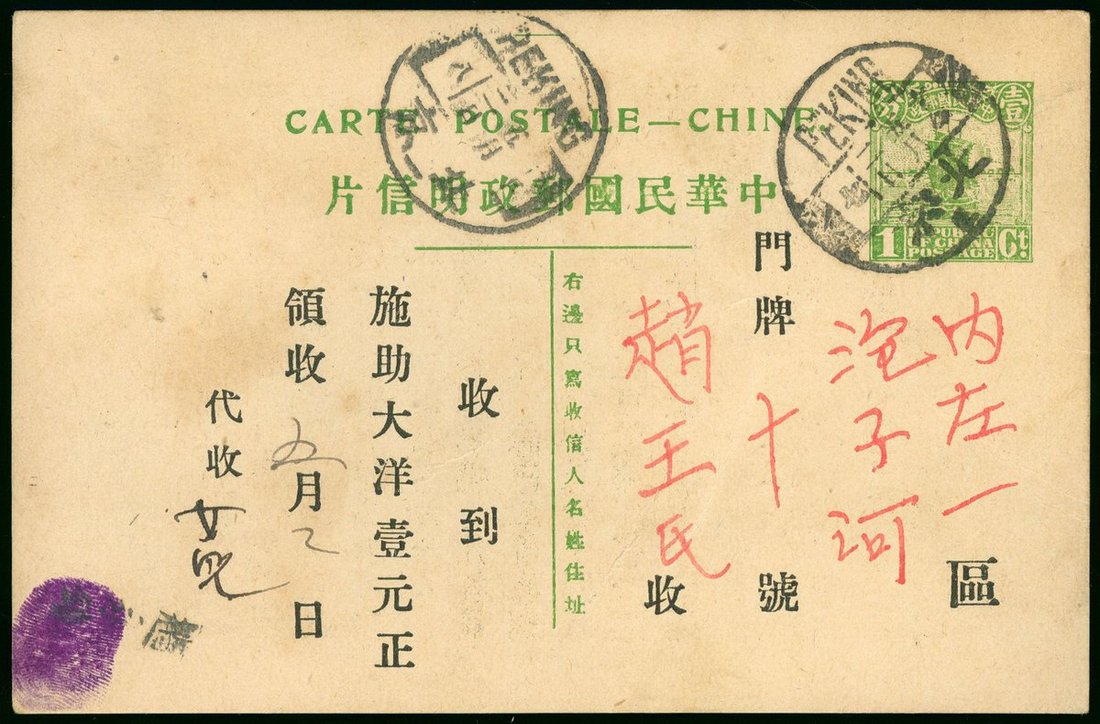 CARTE POSTALE—CHINE
中華民國郵政明信片
壹分
1 Ct.
REPUBLIC
OF CHINA
POSTAGE
PEKING
北京
PEKING
内左一區
泡子河
門牌十號
趙王氏收
右邊只寫收信人名姓住址
收到
施助大洋壹元正
領收五月日
代收女兒